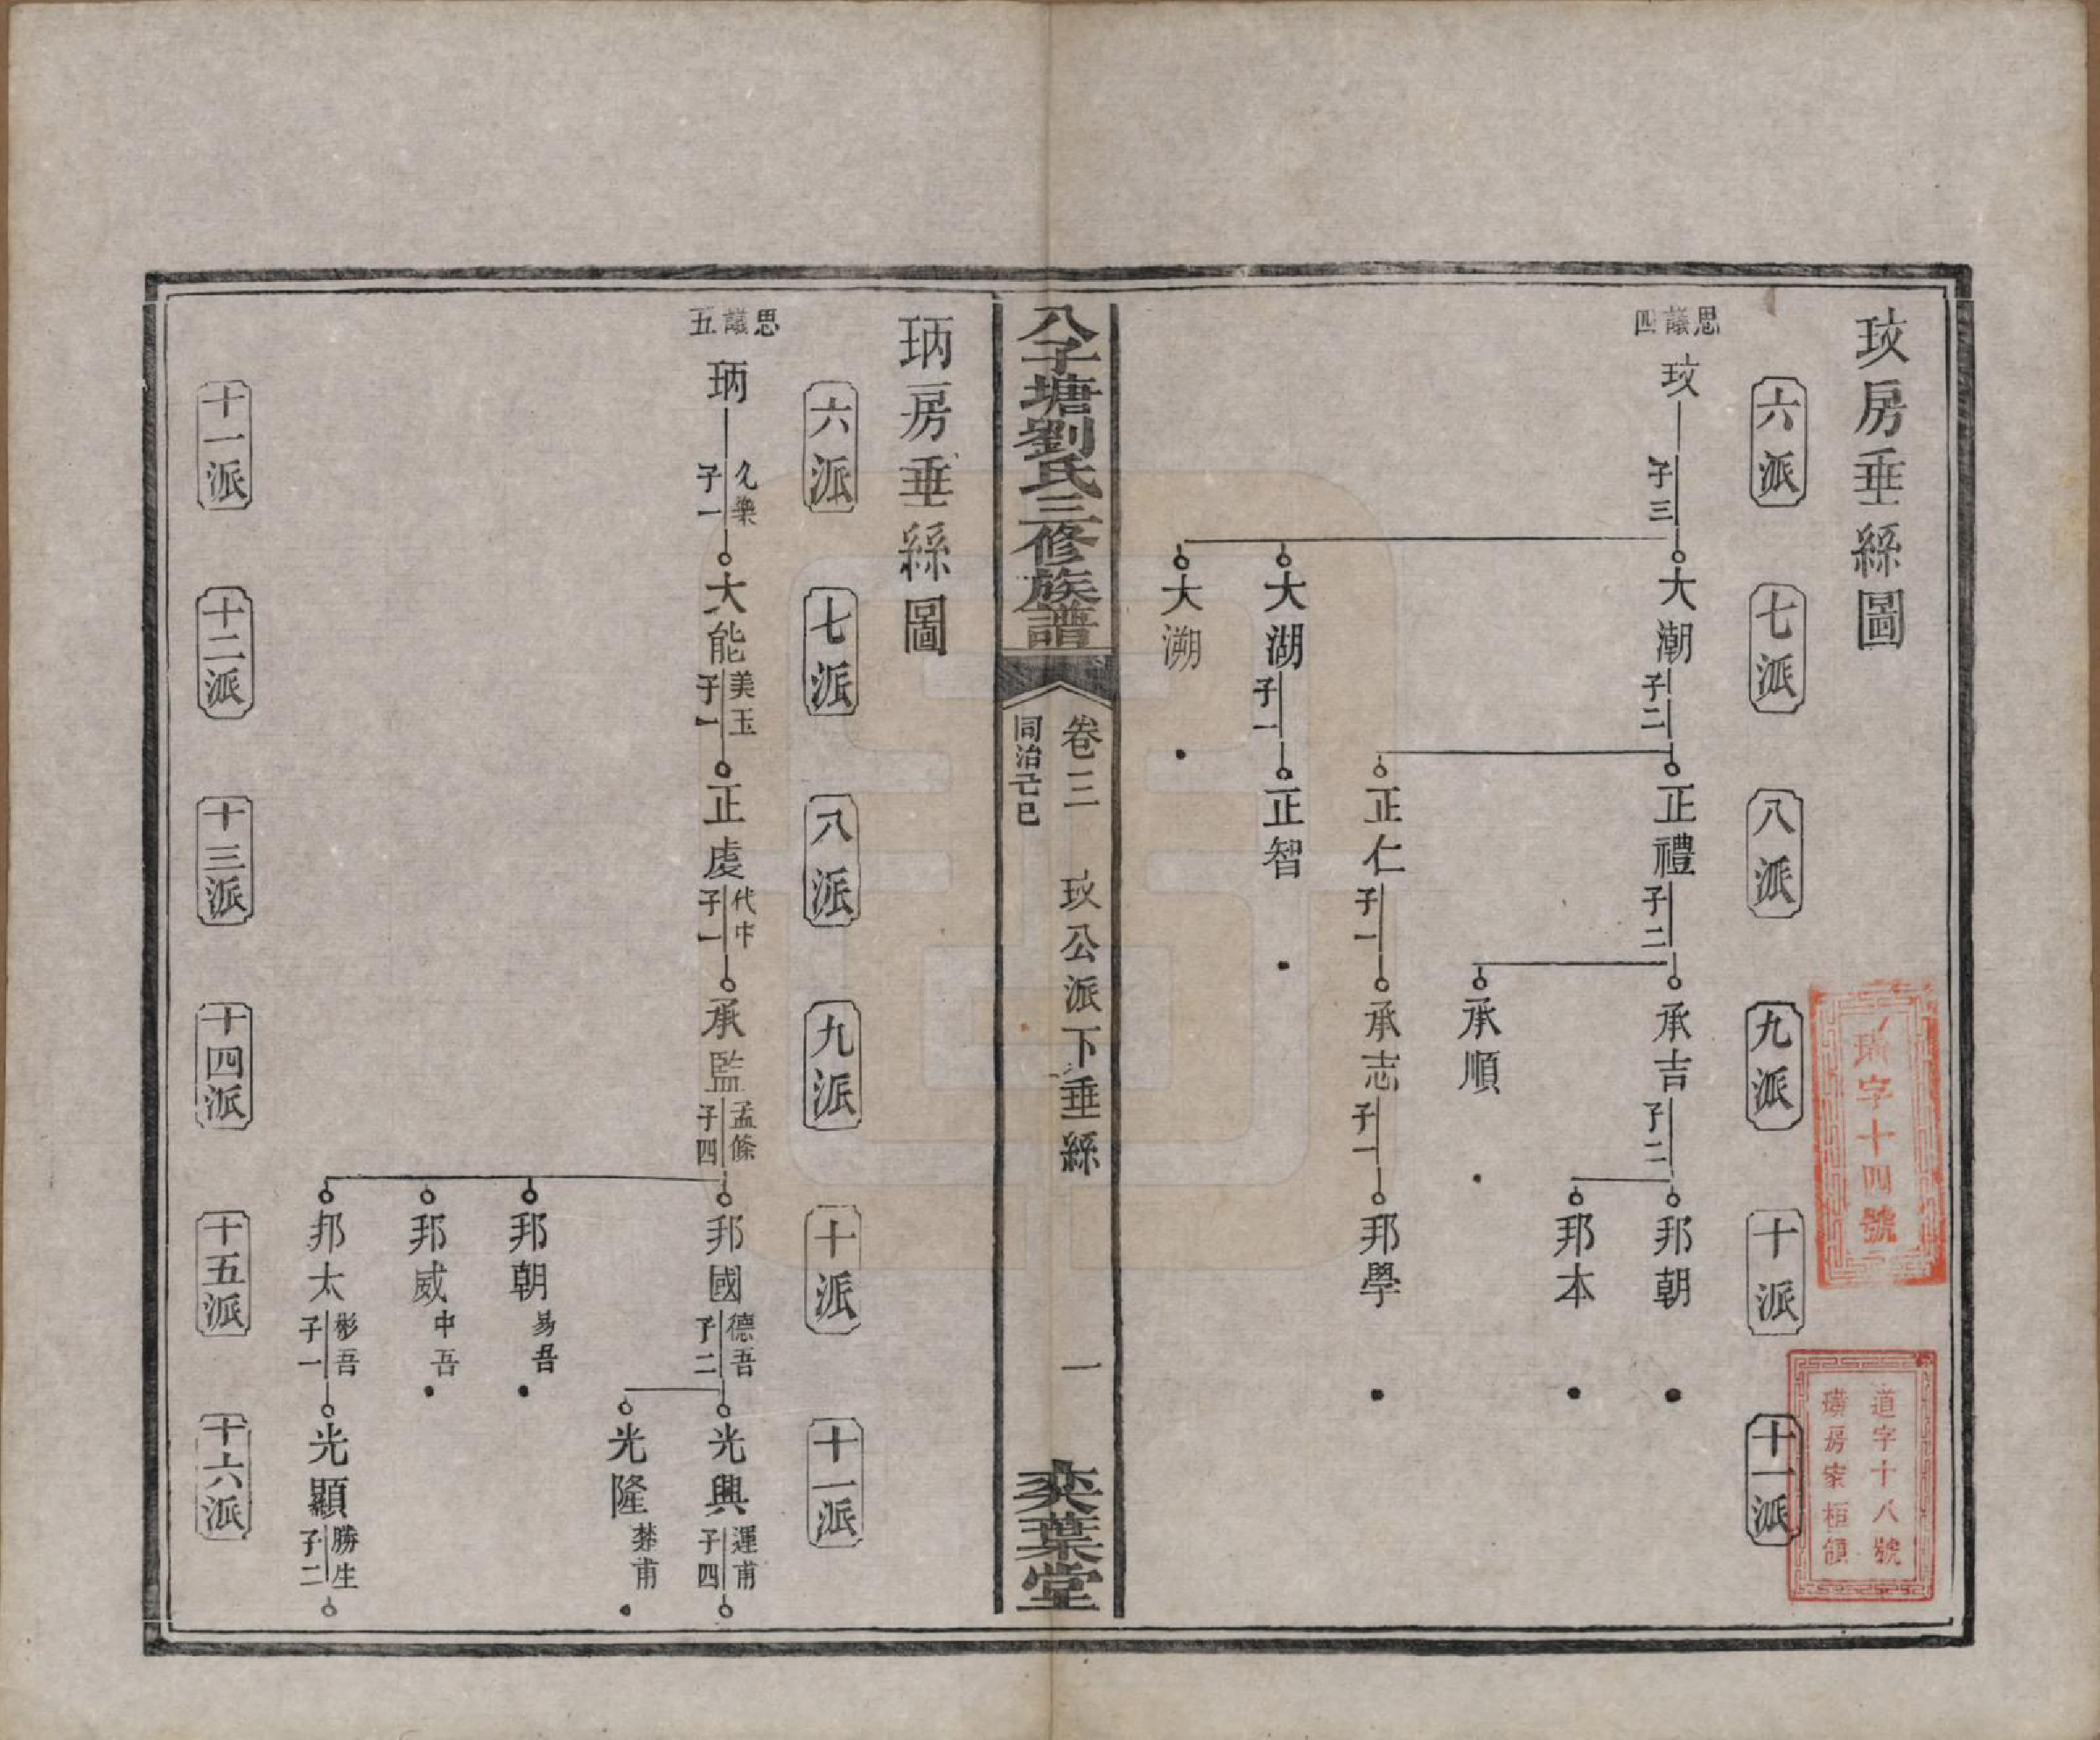 玟房垂絲圖
六派
七派
八派
九派
十派
十一派
思議四
玟
子三
大潮
子二
正禮
子二
承吉
子二
邦朝
邦本
承順
正仁
子一
承志
子一
邦學
大湖
子一
正智
大溯
字十四號
道字十八號
房家桓領
八子塘劉氏三修族譜
卷三 玟公派下垂絲 一
同治己巳
奕葉堂
昞房垂絲圖
六派
七派
八派
九派
十派
十一派
思議五
昞
久樂
子一
大能
美玉
子一
正虔
代中
子一
承監
孟條
子四
邦國
德吾
子二
光興
運甫
子四
光隆
棼甫
邦朝
易吾
邦威
中吾
邦太
彬吾
子一
光顯
勝生
子二
十一派
十二派
十三派
十四派
十五派
十六派